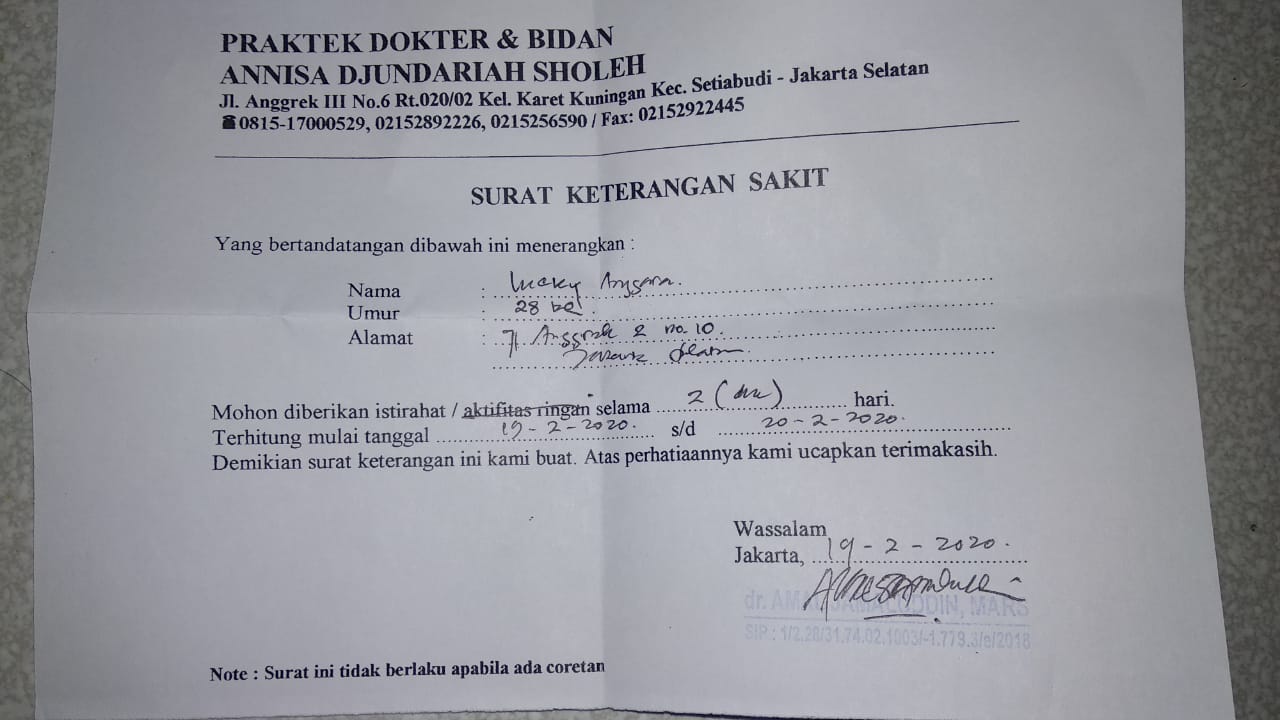 PRAKTEK DOKTER & BIDAN
ANNISA DJUNDARIAH SHOLEH
Jl. Anggrek III No.6 Rt.020/02 Kel. Karet Kuningan Kec. Setiabudi - Jakarta Selatan
☎0815-17000529, 02152892226, 0215256590 / Fax: 02152922445
SURAT KETERANGAN SAKIT
Yang bertandatangan dibawah ini menerangkan :
Nama : Lucky Anggara.
Umur : 28
Alamat : Jl. Anggrek 2 no. 10.
Mohon diberikan istirahat / aktifitas ringan selama 2 (dua) hari.
Terhitung mulai tanggal 19-2-2020. s/d 20-2-2020.
Demikian surat keterangan ini kami buat. Atas perhatiaannya kami ucapkan terimakasih.
Wassalam
Jakarta, 19-2-2020.
dr. MARS
SIP.: 1/2.28/31.74.02.1003/-1.779.3/e/2018
Note : Surat ini tidak berlaku apabila ada coretan